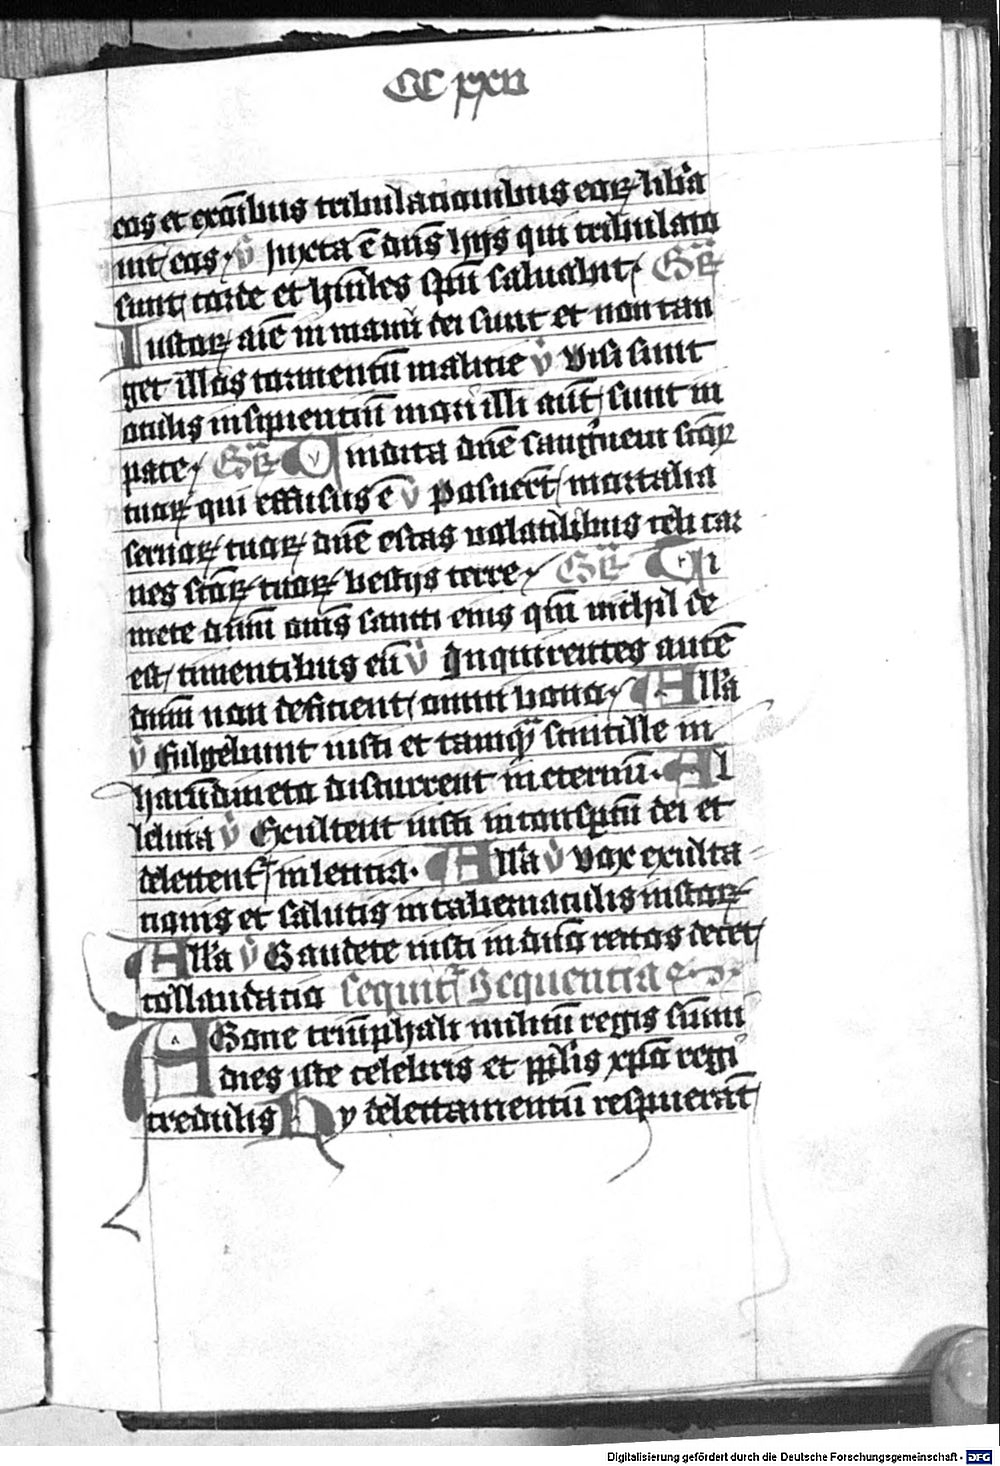 CC xxii
eos et ex oīb̄us tribulationibus eoꝝ lib̾a
uit eos. v̾ Juxta ē dn̄s hijs qui tribulato
sunt corde et hūiles sp̄u saluabit. Gꝝ
Iustoꝝ aīe in manu dei sunt et non tan
get illos tormentū malitie v̾ Visi sunt
oculis insipientiū mori illi aūt sunt in
pace. Gꝝ Vindica dn̄e sanguinem sctōꝝ
tuoꝝ qui effusus ē v̾ Posuer̄t mortalia
seruoꝝ tuoꝝ dn̄e escas volatilibus celi car
nes sctōꝝ tuoꝝ bestijs terre. Gꝝ Ti
mete dn̄m om̄s sancti eius qm̄ nichil de
est timentibus eū v̾ Inquirentes autē
dn̄m non deficient omni bono. All̾a
v̾ Fulgebunt iusti et tamqᷓ scintille in
harūdineto discurrent in eternū. Al
leluia v̾ Exultent iusti in conspectu dei et
delectent᷑ in leticia. All̾a v̾ Vox exulta
tionis et salutis in tabernaculis iustoꝝ
All̾a v̾ Gaudete iusti in dn̄o rectos decet
collaudatio Sequit᷑ Sequentia
AGone triūphali militū regis sūmi
dies iste celebris est pplis xp̄o regi
credulis Hij delectamentū respuerāt
Digitalisierung gefördert durch die Deutsche Forschungsgemeinschaft - DFG